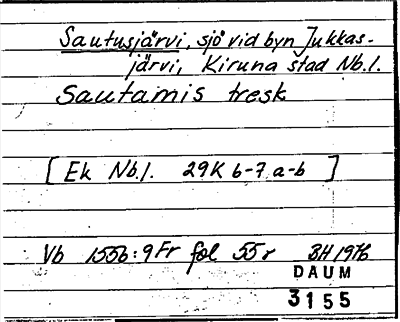 Sautusjärvi, sjö vid byn Jukkas-
järvi, Kiruna stad Nb.l.
Sautamis tresk
[Ek Nb.l. 29K 6-7 a-b]
Vb 1556:9 Fr fol 55r BH 1976
DAUM
3155